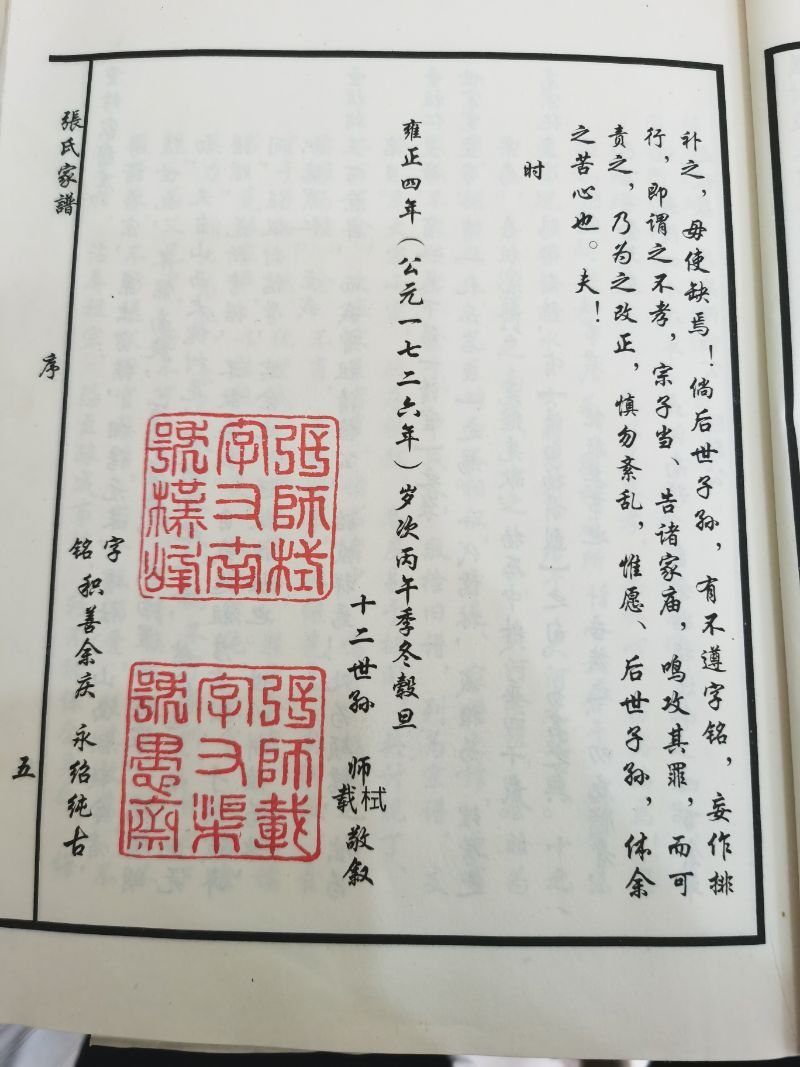 补之，毋使缺焉！倘后世子孙，有不遵字铭，妄作排
行，即谓之不孝，宗子当、告诸家庙，鸣攻其罪，而可
责之，乃为之改正，慎勿紊乱，惟愿、后世子孙，体余
之苦心也。夫！
时
雍正四年（公元一七二六年）岁次丙午季冬穀旦
十二世孙 师栻载 敬叙
張師栻
字又南
號樸峰
張師載
字又渠
號愚齋
字铭 积善余庆 永绍纯古
張氏家譜 序 五